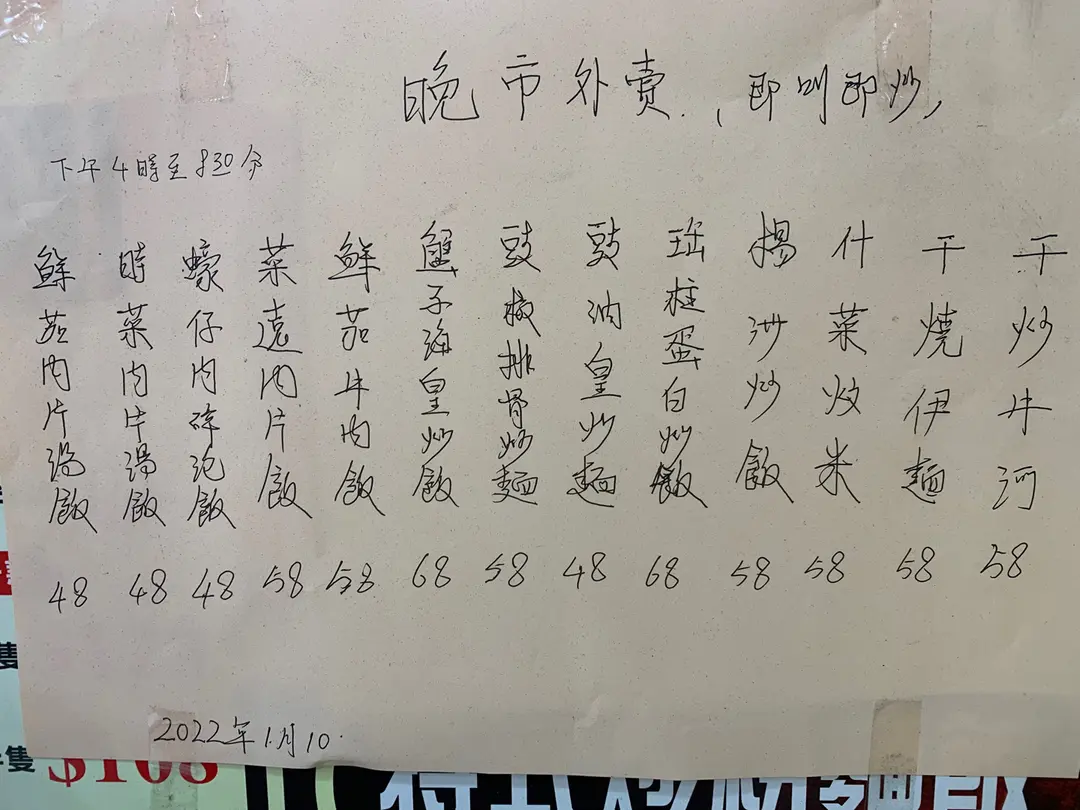 晚市外賣.(即叫即炒)
下午4時至830分
干炒牛河 58
干燒伊麵 58
什菜炆米 58
揚洲炒飯 58
瑤柱蛋白炒飯 68
豉油皇炒麵 48
豉椒排骨炒麵 58
蟹子海皇炒飯 68
鮮茄牛肉飯 58
菜遠肉片飯 58
蠔仔肉碎泡飯 48
時菜肉片湯飯 48
鮮茄肉片湯飯 48
2022年1月10
隻
隻 $108